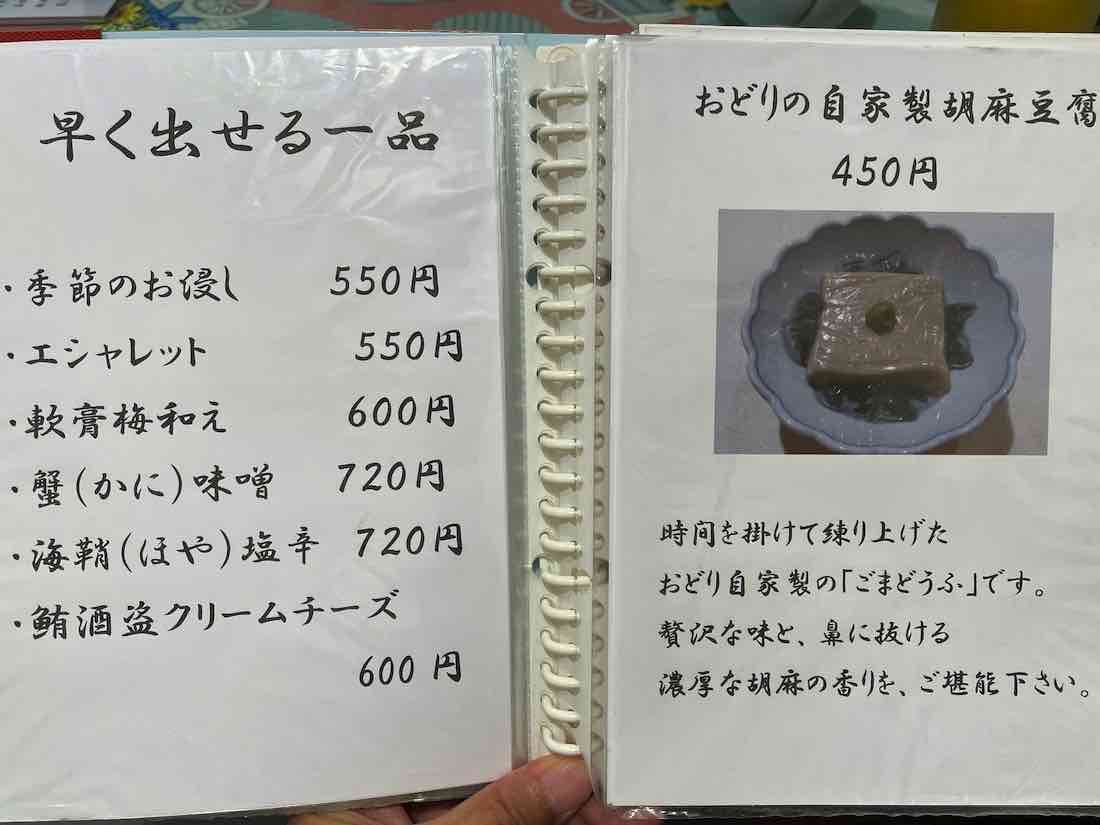 早く出せる一品
・季節のお浸し 550円
・エシャレット 550円
・軟膏梅和え 600円
・蟹(かに)味噌 720円
・海鞘(ほや)塩辛 720円
・鮪酒盗クリームチーズ
600円
おどりの自家製胡麻豆腐
450円
時間を掛けて練り上げた
おどり自家製の「ごまどうふ」です。
贅沢な味と、鼻に抜ける
濃厚な胡麻の香りを、ご堪能下さい。